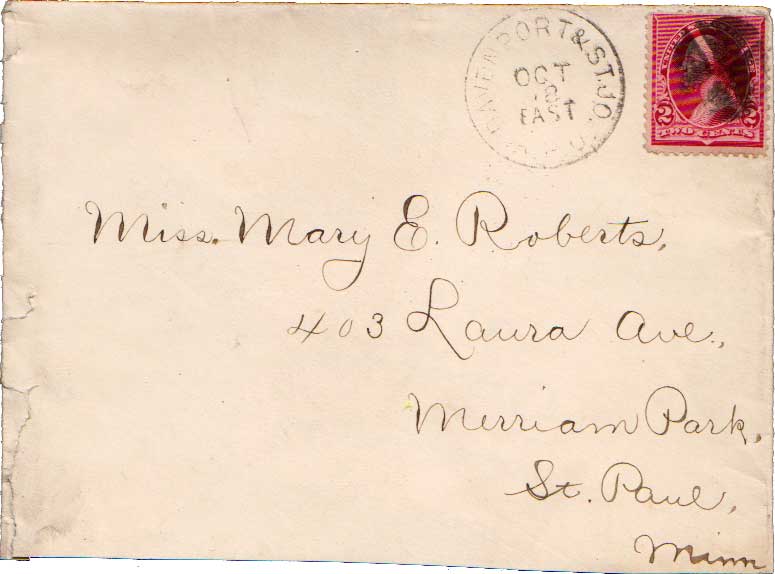 DAVENPORT & ST. JO.
OCT
EAST
UNITED STATES POSTAGE
2 2
TWO CENTS
Miss. Mary E. Roberts,
403 Laura Ave.,
Merriam Park,
St. Paul,
Minn